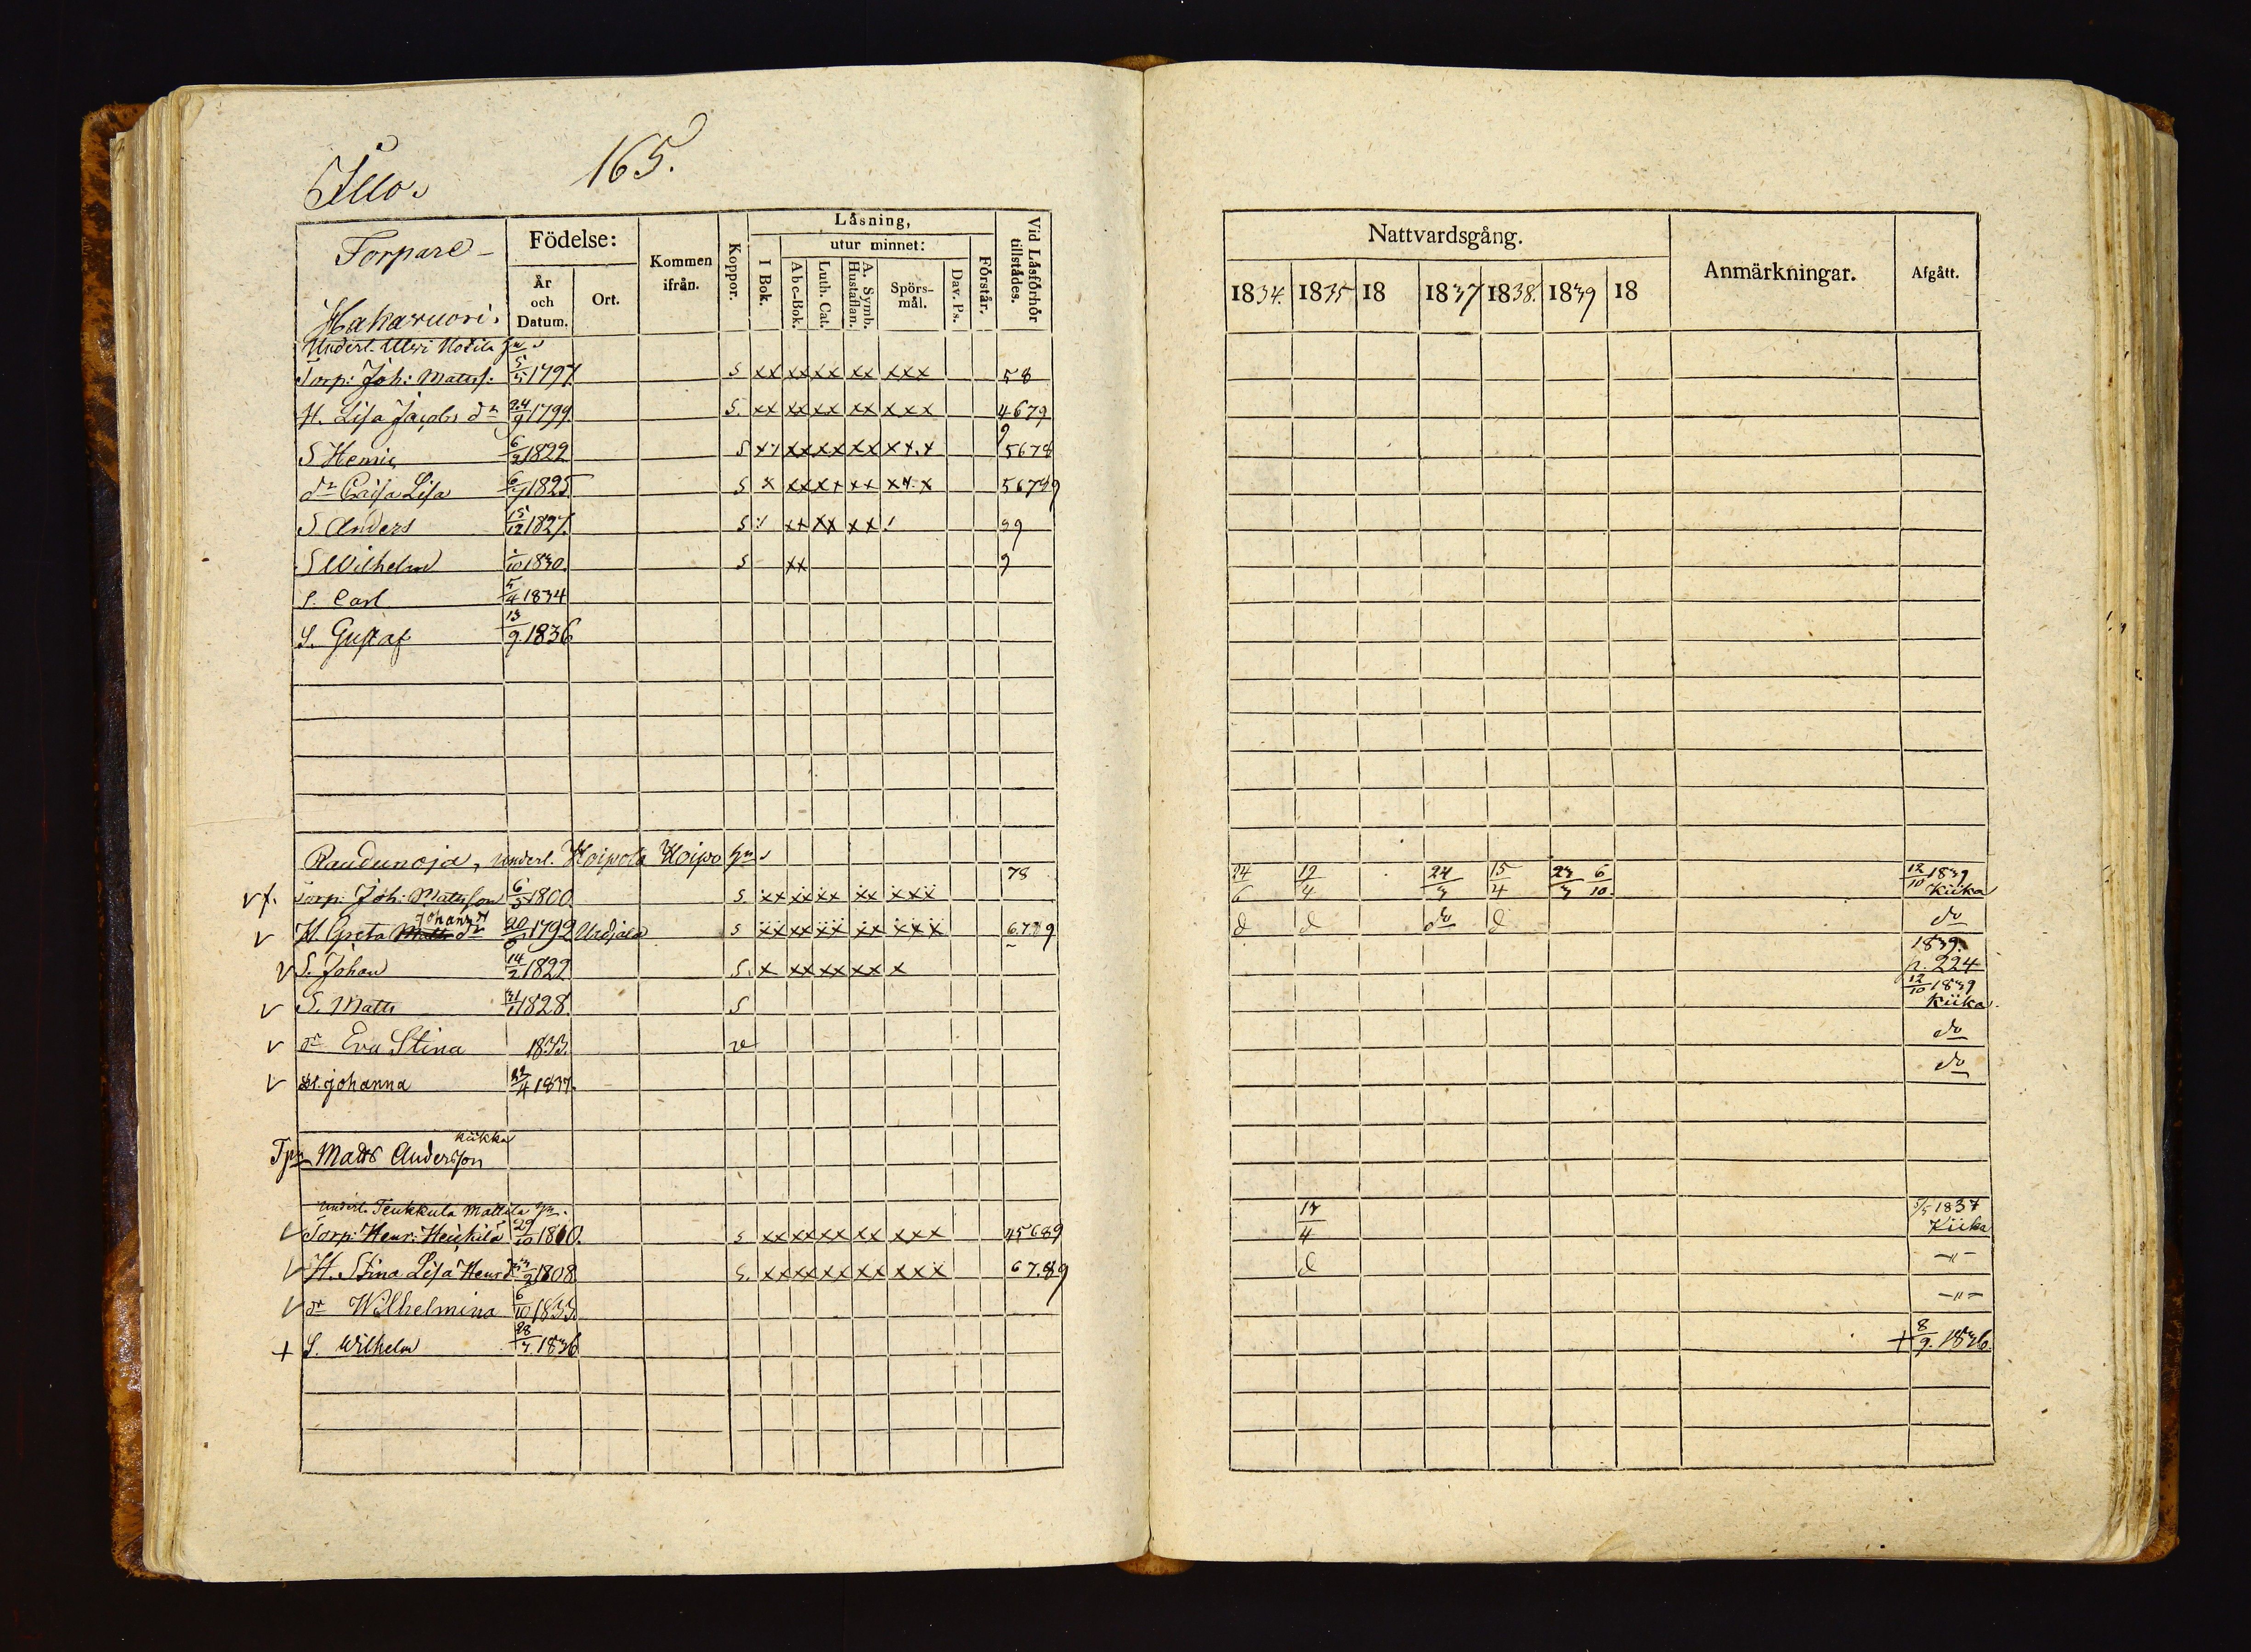 Illo.
165.
Torpare
Födelse:
Kommen ifrån.
Koppor.
Läsning,
utur minnet:
I Bok.
Abc-Bok.
Luth. Cat.
A. Symb. Hustaflan.
Spörs-mål.
Dav. Ps.
Förstår.
Vid Läsförhör tillstädes.
År och Datum.
Ort.
Hakavuori.
Underl. Hn.
Torp: Joh: Mattss. 5/5 1797 S xx xx xx xx xxx 58
H. Lisa Jacobs dr 24/9 1799 S. xx xx xx xx xxx 4679
S Henric 6/2 1822 S xx xx xx xx 5678 9
dr Caisa Lisa 1825 S x xx xx xx 56789
S Anders 15/12 1827. S xx xx xx 9
S Wilhelm 10 1830. S xx 9
S. Carl 5/4 1834
S. Gustaf 13/9. 1836
Raudunoja, underl. Hoipola Hoipo Hn.
78
Torp: Joh: Mattsson 6/5 1800. S. xx xx xx xx xxx
H. Greta Matts Johans dr 20 1792 Urdjala S xx xx xx xx xxx 6789
S. Johan 14/2 1822 S. x xx xx xx x
S. Matts 1828 S
dr Eva Stina 1833. v
dr. Johanna 4 1837.
Kiikka
Tpr Matts Andersson
underl. Teukkula Mattila Hn.
Torp: Henr: Heikkilä 29/10 1800. S xx xx xx xx xxx 45689
H. Stina Lisa Henrs dr 2 1808 S. xx xx xx xx xxx 67.89
dr Wilhelmina 6/10 1833
+ S. Wilhelm 28/7 1836
Nattvardsgång.
Anmärkningar.
Afgått.
1834. 1835 18 1837 1838. 1839 18
24/6 12/4 24/3 15/4 23/3 6/10. 12/10 1839 Kiika
d d do d do
1839. p. 224
12/10 1839 Kiika
do
do
4 1837 Kiika
d -"-
-"-
+ 8/9. 1836.